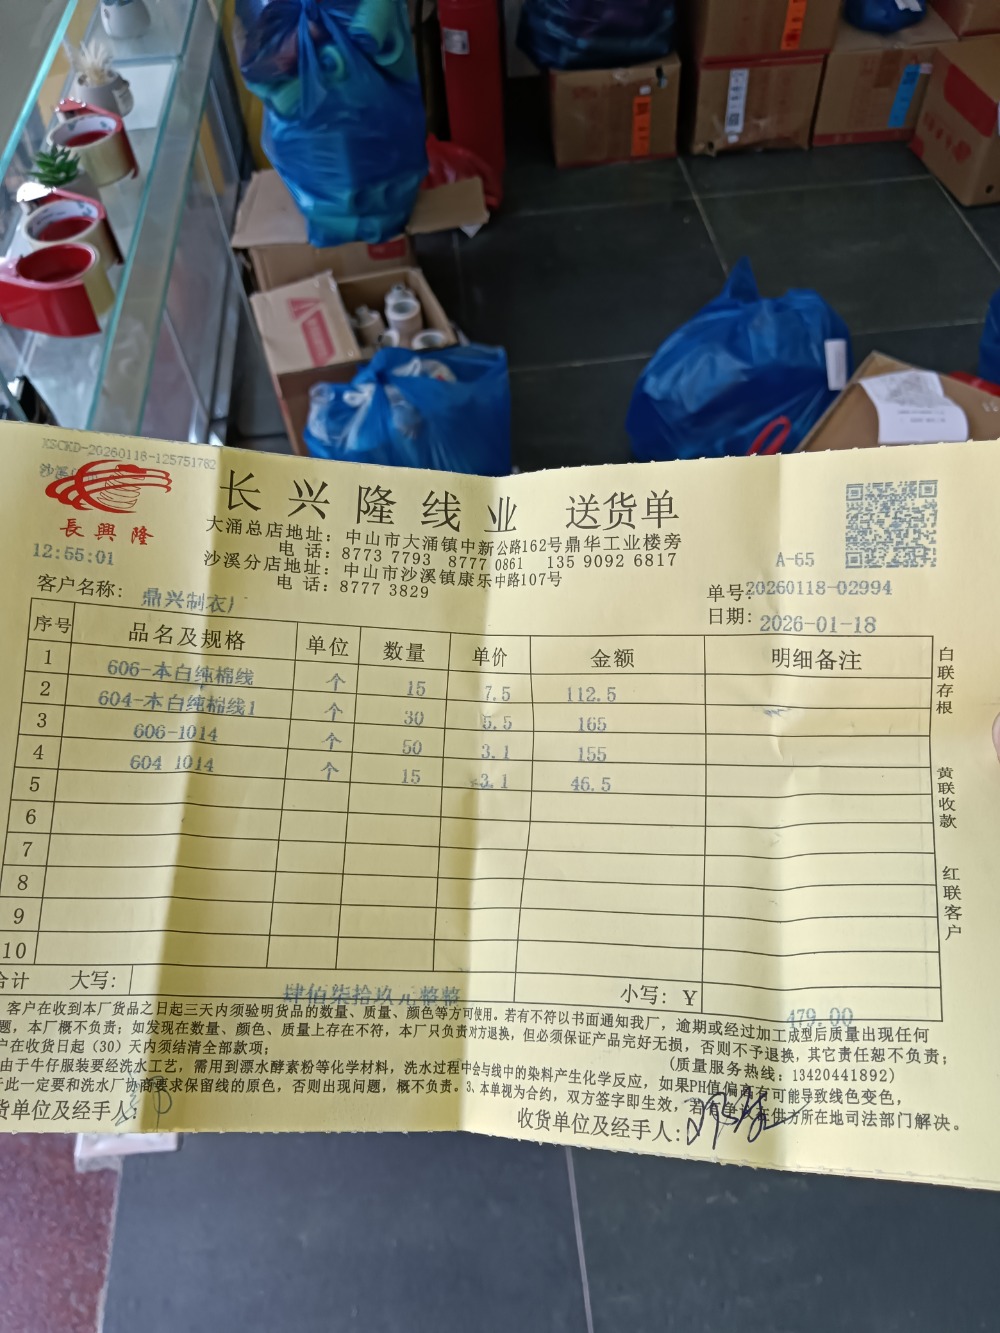 XSCKD-20260118-125751762
沙溪
長興隆
12:55:01
长兴隆线业 送货单
大涌总店地址：中山市大涌镇中新公路162号鼎华工业楼旁
电 话：8773 7793 8777 0861 135 9092 6817
沙溪分店地址：中山市沙溪镇康乐中路107号
电 话：8777 3829
A-65
客户名称：鼎兴制衣厂
单号：20260118-02994
日期：2026-01-18
序号 品名及规格 单位 数量 单价 金额 明细备注
1 606-本白纯棉线 个 15 7.5 112.5
2 604-本白纯棉线1 个 30 5.5 165
3 606-1014 个 50 3.1 155
4 604 1014 个 15 3.1 46.5
5
6
7
8
9
10
合计 大写： 肆佰柒拾玖元整整 小写：Y 479.00
客户在收到本厂货品之日起三天内须验明货品的数量、质量、颜色等方可使用。若有不符以书面通知我厂，逾期或经过加工成型后质量出现任何
题，本厂概不负责；如发现在数量、颜色、质量上存在不符，本厂只负责对方退换，但必须保证产品完好无损，否则不予退换，其它责任恕不负责；
户在收货日起（30）天内须结清全部款项；
(质量服务热线：13420441892)
由于牛仔服装要经洗水工艺，需用到漂水酵素粉等化学材料，洗水过程中会与线中的染料产生化学反应，如果PH值偏高有可能导致线色变色，
于此一定要和洗水厂协商要求保留线的原色，否则出现问题，概不负责。3、本单视为合约，双方签字即生效，若有
供方所在地司法部门解决。
货单位及经手人：
收货单位及经手人：
白联存根
黄联收款
红联客户